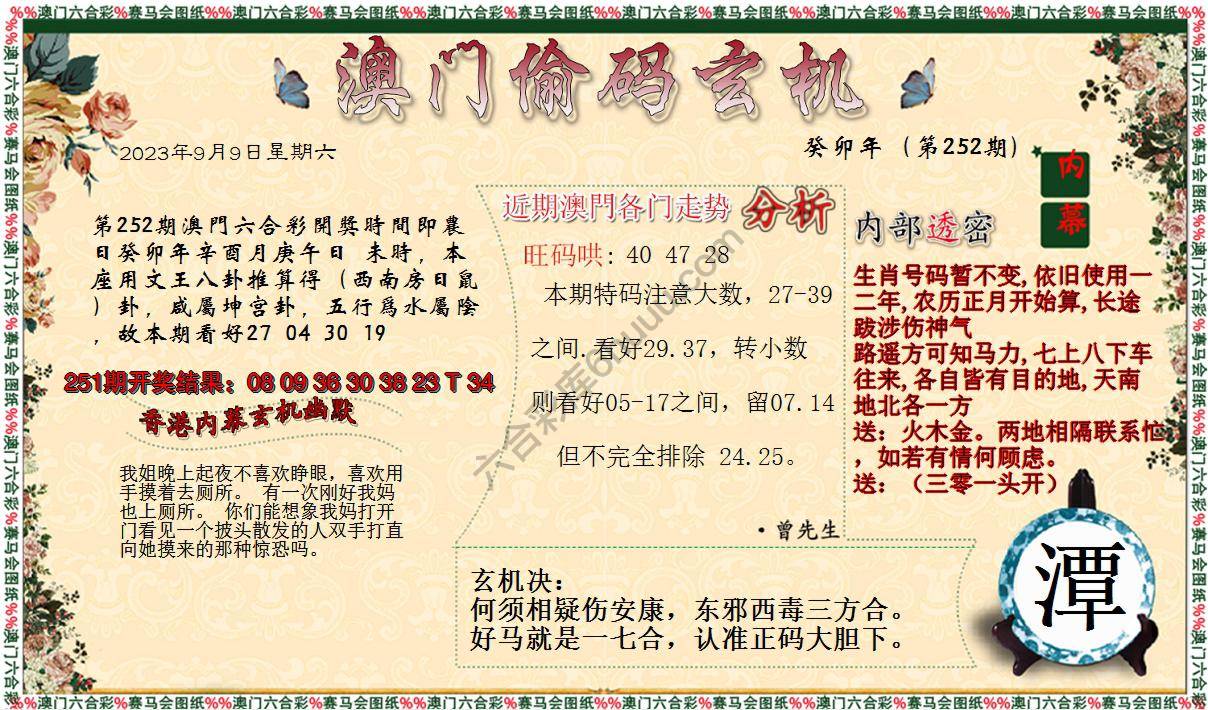 %%澳门六合彩%赛马会图纸%%澳门六合彩%赛马会图纸%%澳门六合彩%赛马会图纸%%澳门六合彩%赛马会图纸%%澳门六合彩%赛马会图纸%%澳门六合彩%赛马会图纸%%
澳门偷码玄机
2023年9月9日星期六
癸卯年（第252期）
内
幕
第252期澳門六合彩開獎時間即農
日癸卯年辛酉月庚午日 未時，本
座用文王八卦推算得（西南房日鼠
）卦，咸屬坤宫卦，五行爲水屬陰
，故本期看好27 04 30 19
251期开奖结果：08 09 36 30 38 23 T 34
香港内幕玄机幽默
我姐晚上起夜不喜欢睁眼，喜欢用
手摸着去厕所。 有一次刚好我妈
也上厕所。 你们能想象我妈打开
门看见一个披头散发的人双手打直
向她摸来的那种惊恐吗。
近期澳門各门走势 分析
旺码哄: 40 47 28
本期特码注意大数，27-39
之间.看好29.37，转小数
则看好05-17之间，留07.14
但不完全排除 24.25。
·曾先生
内部透密
生肖号码暂不变,依旧使用一
二年,农历正月开始算,长途
跋涉伤神气
路遥方可知马力,七上八下车
往来,各自皆有目的地,天南
地北各一方
送：火木金。两地相隔联系忙
，如若有情何顾虑。
送：（三零一头开）
玄机决：
何须相疑伤安康，东邪西毒三方合。
好马就是一七合，认准正码大胆下。
潭
六合彩库6huuu.com
%%澳门六合彩%赛马会图纸%%澳门六合彩%赛马会图纸%%澳门六合彩%赛马会图纸%%澳门六合彩%赛马会图纸%%澳门六合彩%赛马会图纸%%澳门六合彩%赛马会图纸%%